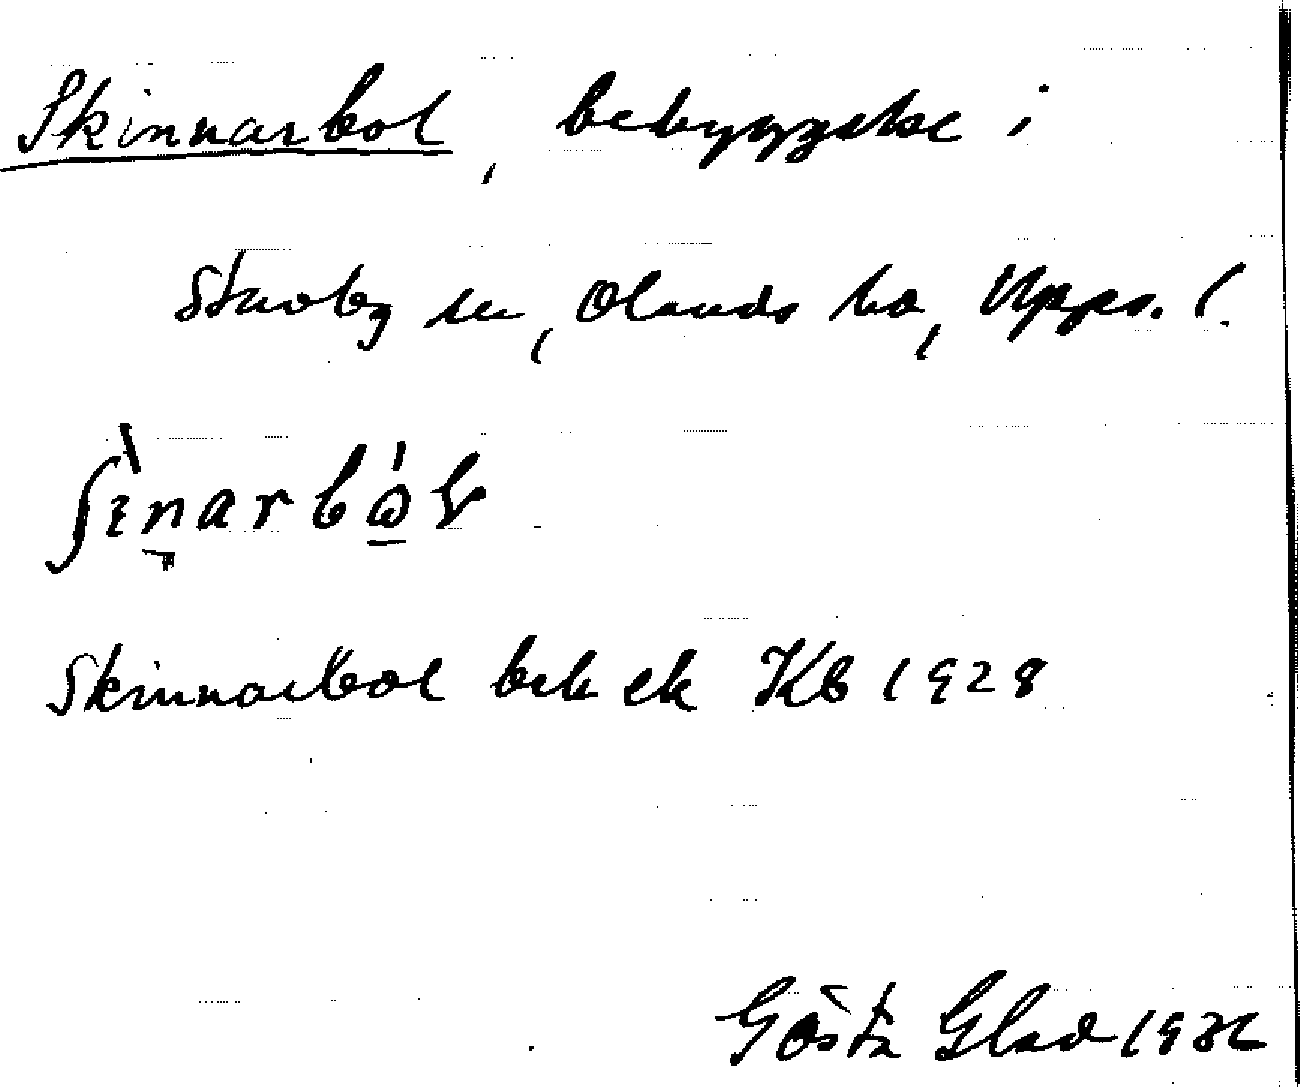 Skinnarbol, bebyggelse i
Stavby sn, Olands hd, Upps. l.
Skinnarbol beb ek Kb 1928
Gösta Glad